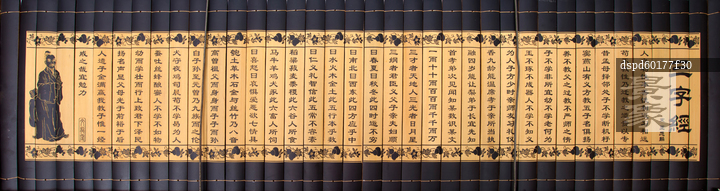 dspd60177f30
字經
昔孟母擇鄰處子不學斷機杼
竇燕山有義方教五子名俱揚
養不教父之過教不嚴師之惰
子不學非所宜幼不學老何為
玉不琢不成器人不學不知義
為人子方少時親師友習禮儀
香九齡能溫席孝于親所當執
融四歲能讓梨弟于長宜先知
首孝弟次見聞知某數識某文
一而十十而百百而千千而萬
三才者天地人三光者日月星
三綱者君臣義父子親夫婦順
曰春夏曰秋冬此四時運不窮
曰南北曰西東此四方應乎中
曰水火木金土此五行本乎數
曰仁義禮智信此五常不容紊
稻粱菽麥黍稷此六穀人所食
馬牛羊雞犬豕此六畜人所飼
曰喜怒曰哀懼愛惡欲七情具
匏土革木石金與絲竹乃八音
高曾祖父而身身而子子而孫
自子孫至元曾乃九族而之倫
犬守夜雞司晨苟不學曷為人
蠶吐絲蜂釀蜜人不學不如物
幼而學壯而行上致君下澤民
揚名聲顯父母光于前裕于後
人遺子金滿籝我教子惟一經
戒之哉宜勉力